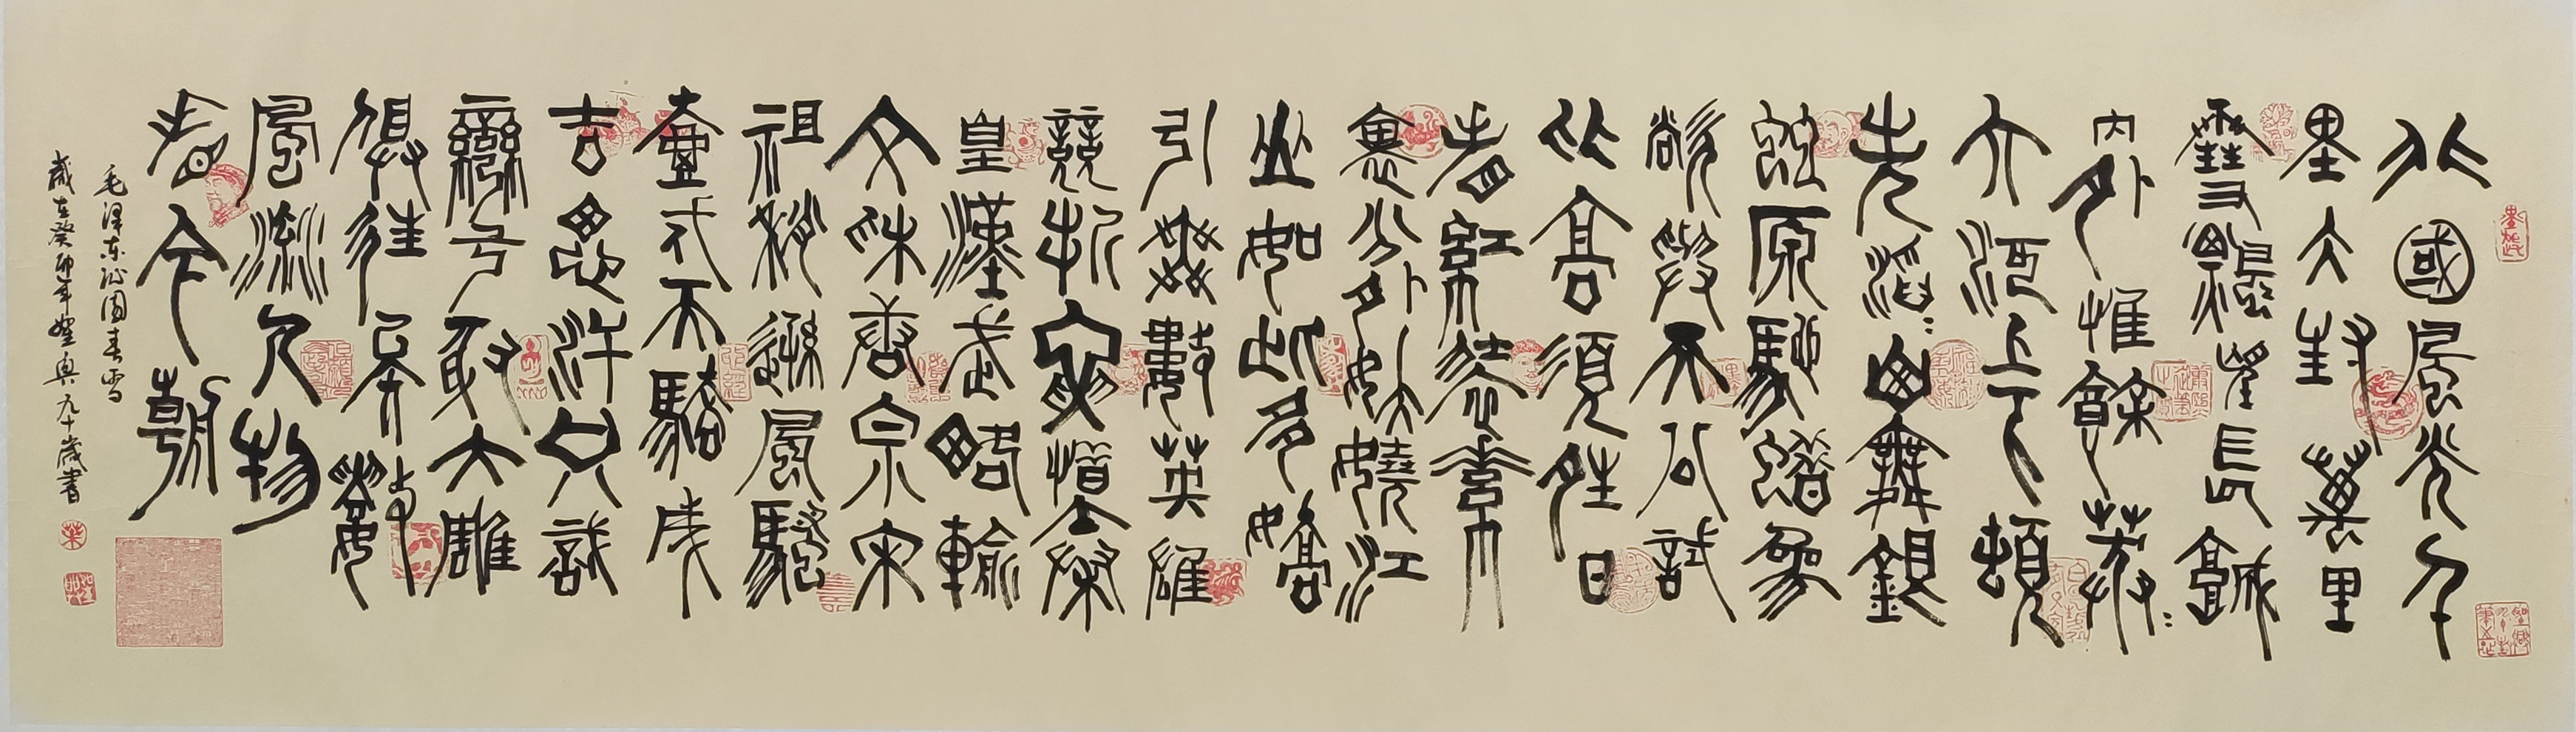 北國風光千
里冰封萬里
雪飄望長城
内外惟餘莽〻
大河上下頓
失滔〻山舞銀
蛇原馳蠟象
欲與天公試
比高須晴日
看紅裝素
裹分外妖嬈江
山如此多嬌
引無數英雄
競折腰惜秦
皇漢武略輸
文采唐宗宋
祖稍遜風騷
壹代天驕成
吉思汗只識
彎弓射大雕
俱往矣數
風流人物
看今朝
毛泽东沁园春雪
歲在癸卯年九十歲書